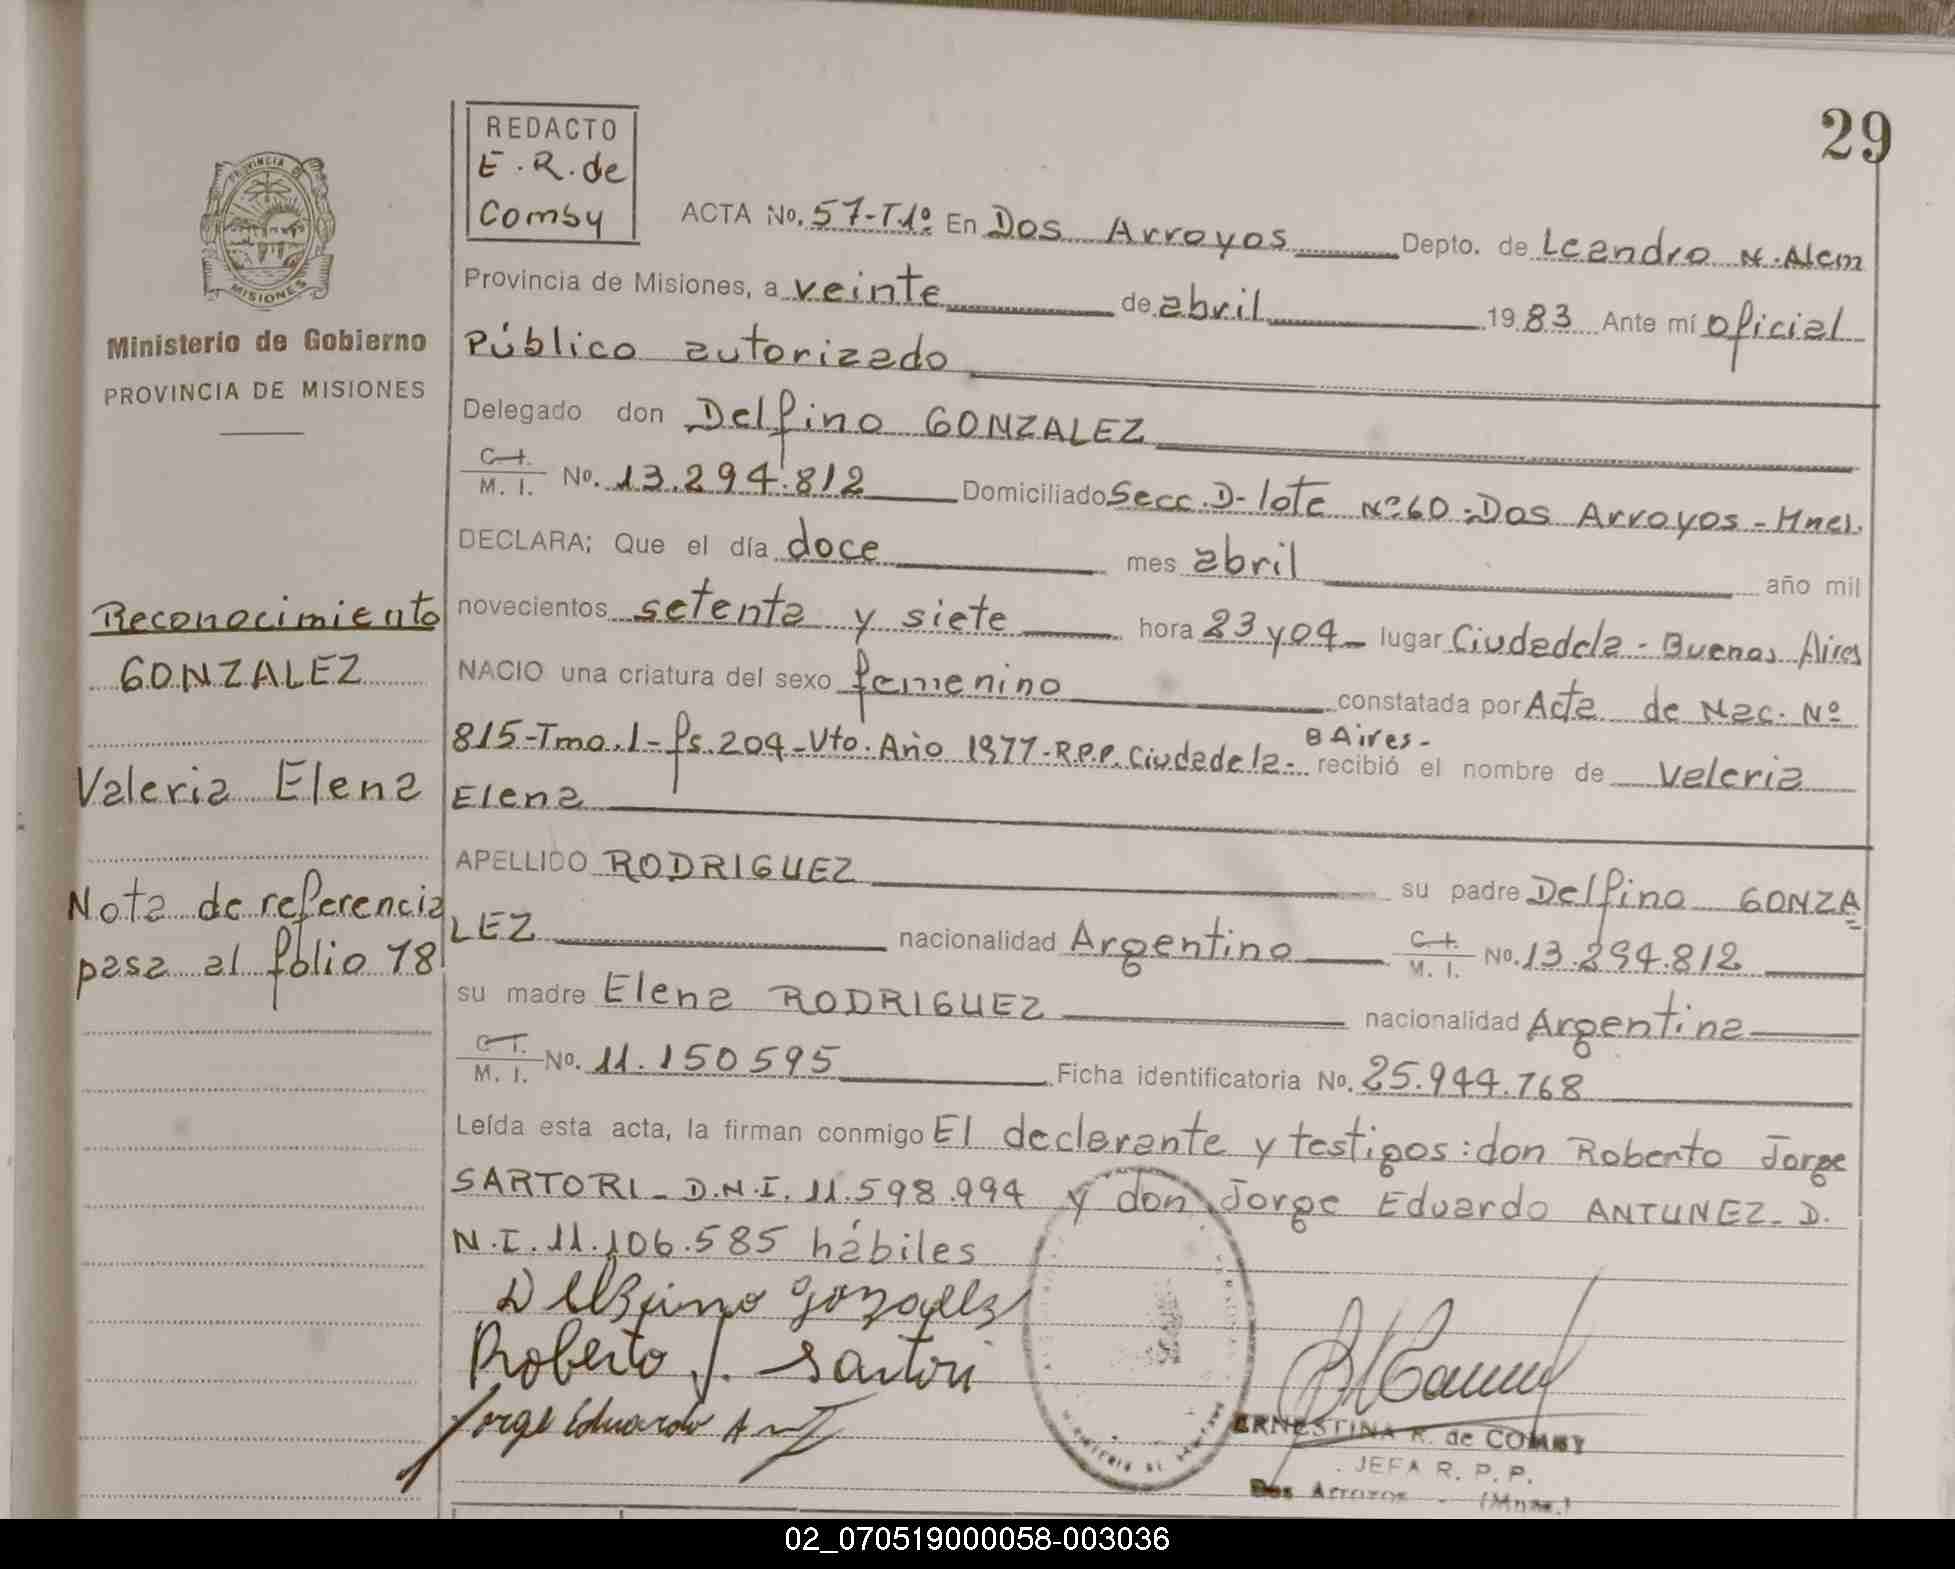 29
REDACTO
E. R. de
Comby
PROVINCIA DE
MISIONES
Ministerio de Gobierno
PROVINCIA DE MISIONES
ACTA No. 57-T.1º. En Dos Arroyos Depto. de Leandro N. Alem
Provincia de Misiones, a veinte de abril 1983 Ante mí oficial
Público autorizado
Delegado don Delfino GONZALEZ
C. I.
M. I. No. 13.294.812 Domiciliado Secc. D- lote Nº 60- Dos Arroyos - Mnes.
DECLARA; Que el día doce mes abril año mil
novecientos setenta y siete hora 23 y 04 - lugar Ciudadela - Buenos Aires
NACIO una criatura del sexo femenino constatada por Acta de Nac. Nº
815-Tmo.1- fs. 204-Vto. Año 1977-R.P.P. Ciudadela- B Aires- recibió el nombre de Valeria
Elena
APELLIDO RODRIGUEZ su padre Delfino GONZA
LEZ nacionalidad Argentino C. I.
M. I. No. 13.294.812
su madre Elena RODRIGUEZ nacionalidad Argentina
C. I.
M. I. No. 11.150595 Ficha identificatoria No. 25.944.768
Leída esta acta, la firman conmigo El declarante y testigos: don Roberto Jorge
SARTORI - D.N.I. 11.598.994 y don Jorge Eduardo ANTUNEZ - D.
N.I. 11.106.585 hábiles
Reconocimiento
GONZALEZ
Valeria Elena
Nota de referencia
pasa al folio 78
Delfino Gonzalez
Roberto J. Sartori
Jorge Eduardo
ERNESTINA R. de COMBY
JEFA R. P. P.
Dos Arroyos - (Mnes.)
02_070519000058-003036